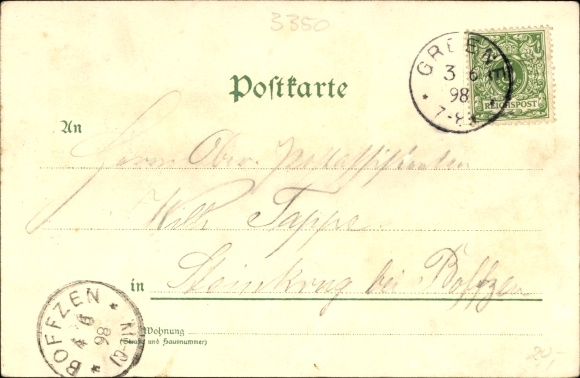 3350
GREENE
3 6
98
7-8
REICHSPOST
Postkarte
An
Herrn Ober-Postassistenten
Wilh Tappe
in Steinkrug bei Boffzen
BOFFZEN
4 6
98
Wohnung
(Straße und Hausnummer)
20,-